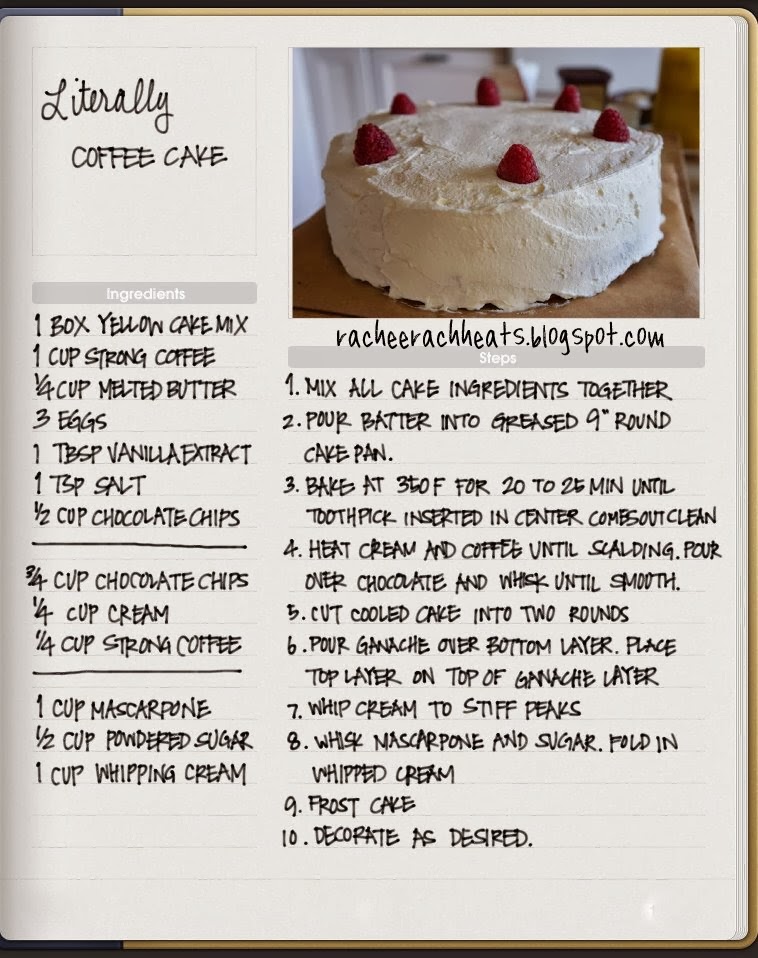 Literally
COFFEE CAKE
Ingredients
1 BOX YELLOW CAKE MIX
1 CUP STRONG COFFEE
1/4 CUP MELTED BUTTER
3 EGGS
1 TBSP VANILLA EXTRACT
1 TSP SALT
1/2 CUP CHOCOLATE CHIPS
3/4 CUP CHOCOLATE CHIPS
1/4 CUP CREAM
1/4 CUP STRONG COFFEE
1 CUP MASCARPONE
1/2 CUP POWDERED SUGAR
1 CUP WHIPPING CREAM
racheerachheats.blogspot.com
Steps
1. MIX ALL CAKE INGREDIENTS TOGETHER
2. POUR BATTER INTO GREASED 9" ROUND
CAKE PAN.
3. BAKE AT 350F FOR 20 TO 25 MIN UNTIL
TOOTHPICK INSERTED IN CENTER COMES OUT CLEAN
4. HEAT CREAM AND COFFEE UNTIL SCALDING. POUR
OVER CHOCOLATE AND WHISK UNTIL SMOOTH.
5. CUT COOLED CAKE INTO TWO ROUNDS
6. POUR GANACHE OVER BOTTOM LAYER. PLACE
TOP LAYER ON TOP OF GANACHE LAYER
7. WHIP CREAM TO STIFF PEAKS
8. WHISK MASCARPONE AND SUGAR. FOLD IN
WHIPPED CREAM
9. FROST CAKE
10. DECORATE AS DESIRED.